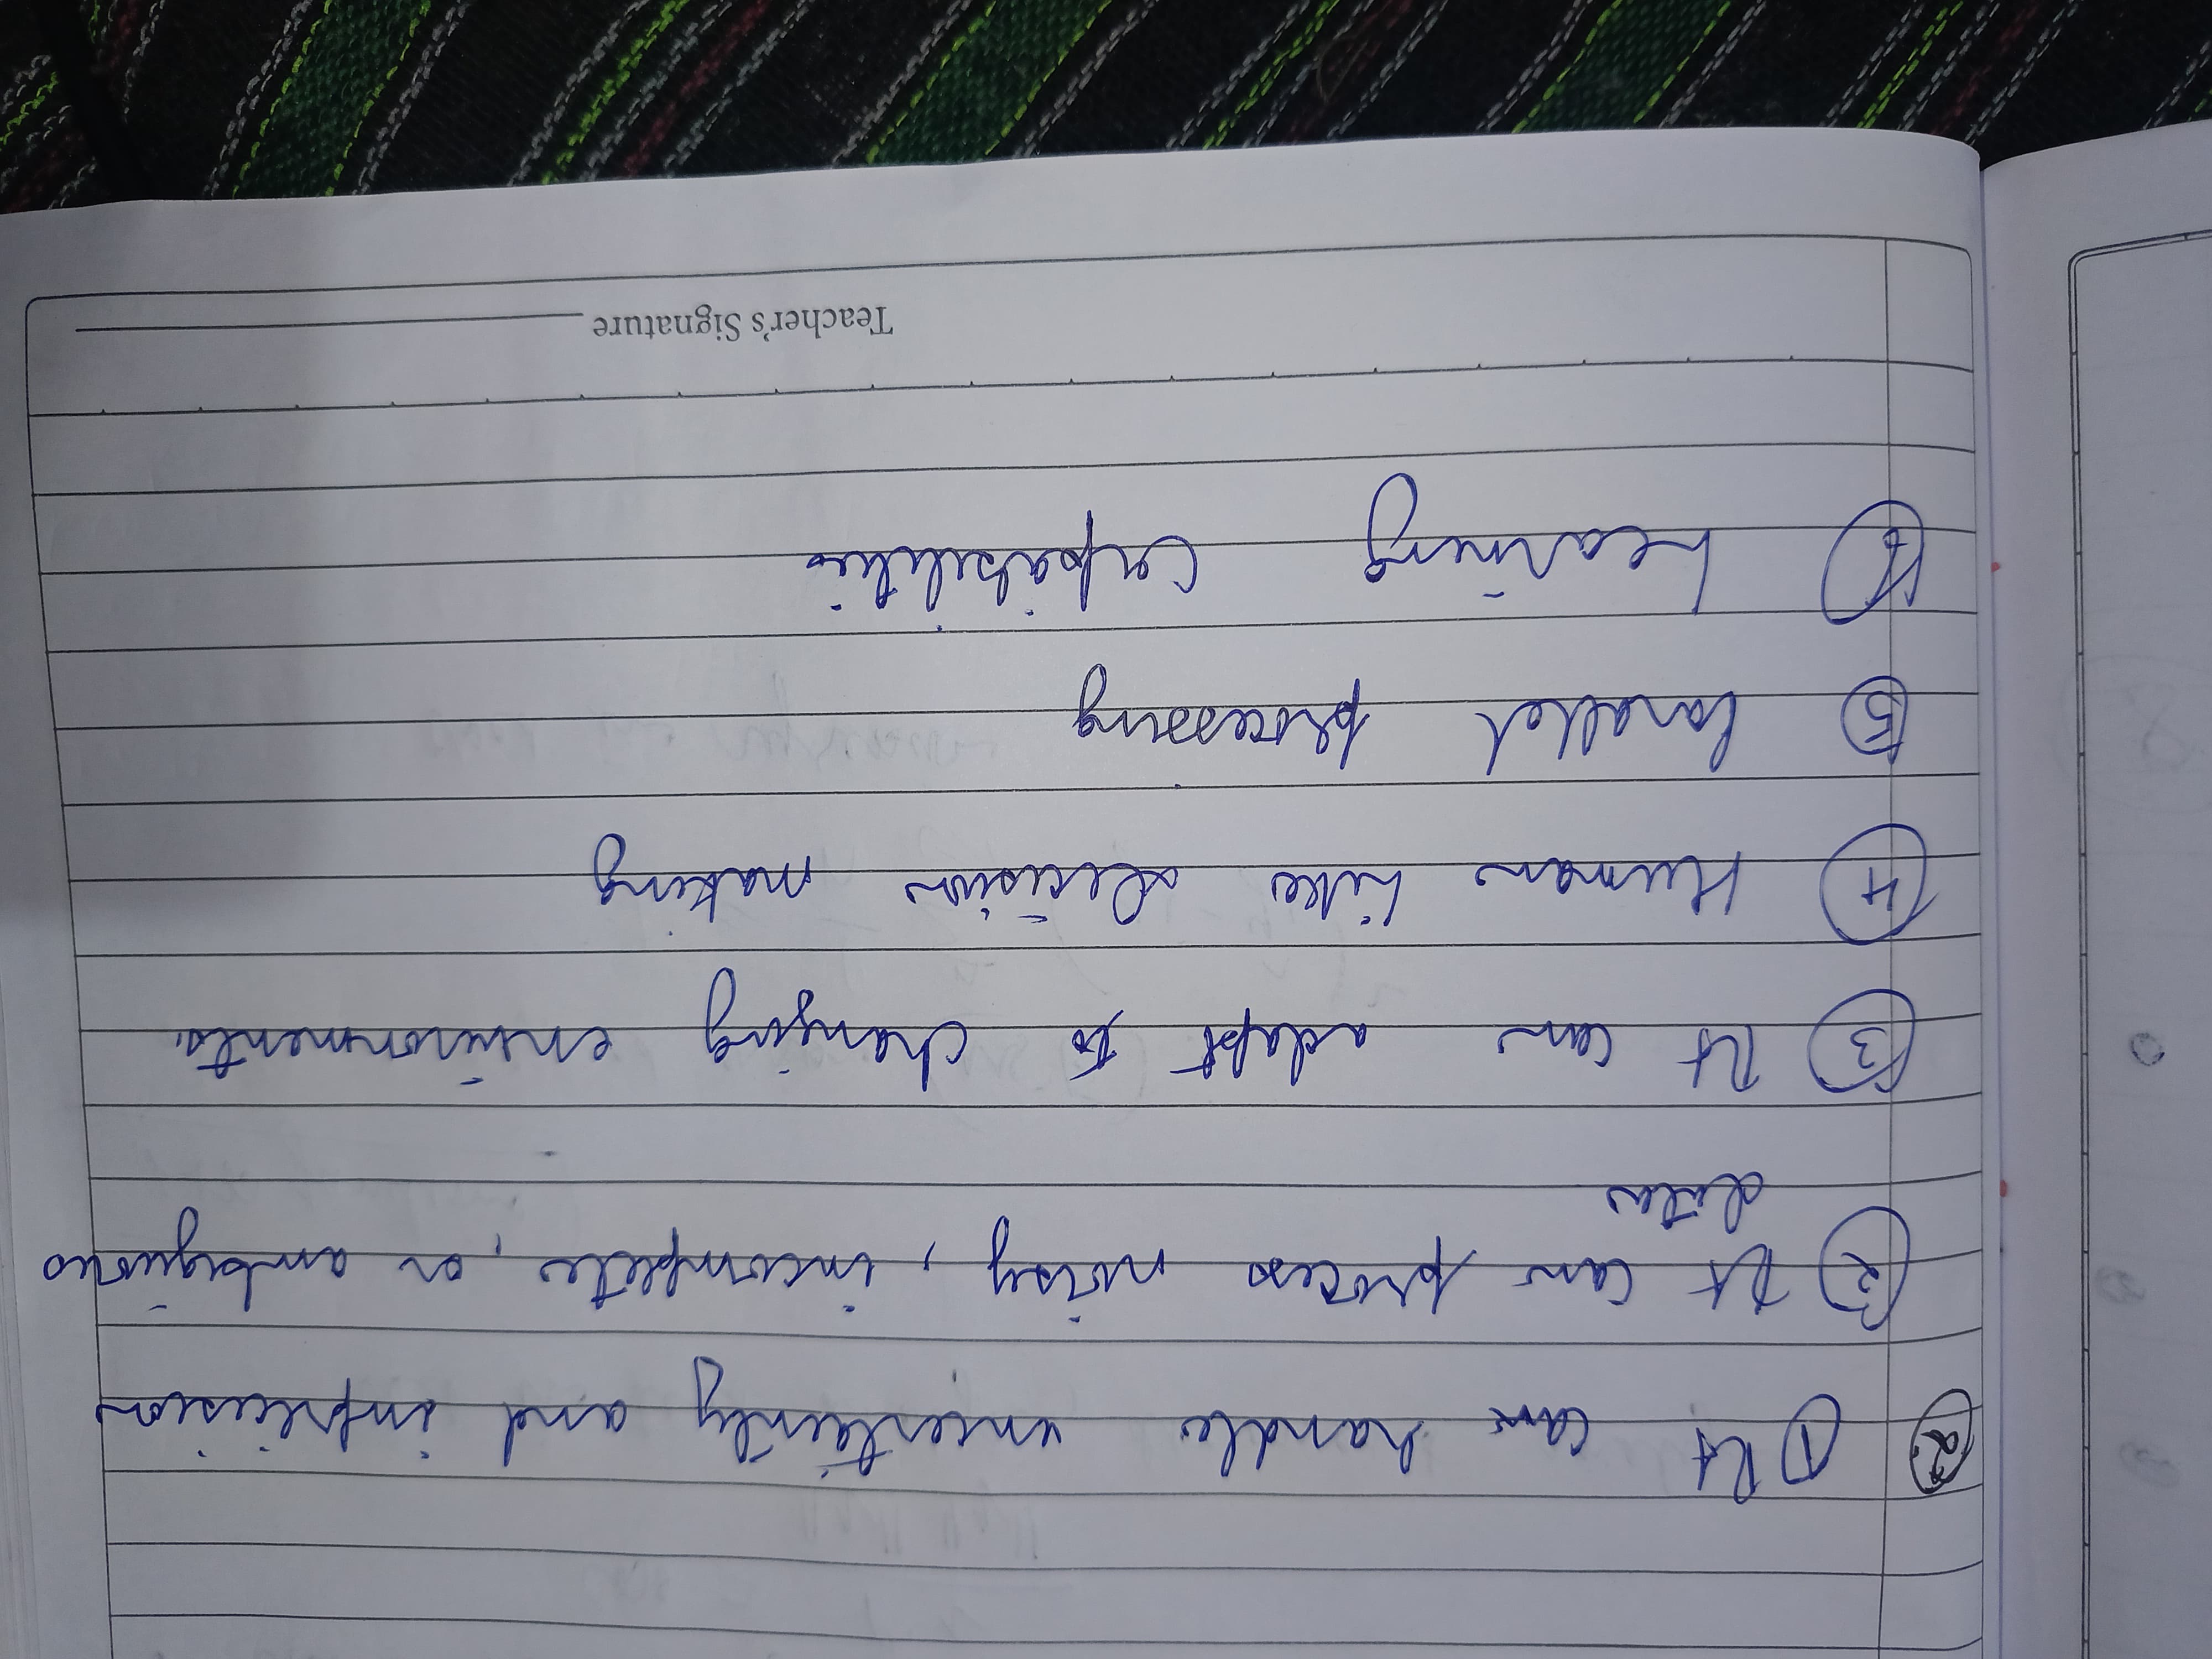 2. 1 It can handle uncertainty and imprecision
2 It can process noisy, incomplete, or ambiguous
data
3 It can adapt to changing environments.
4 Human Like Decision making
5 Parallel processing
6 Learning Capabilities
Teacher's Signature